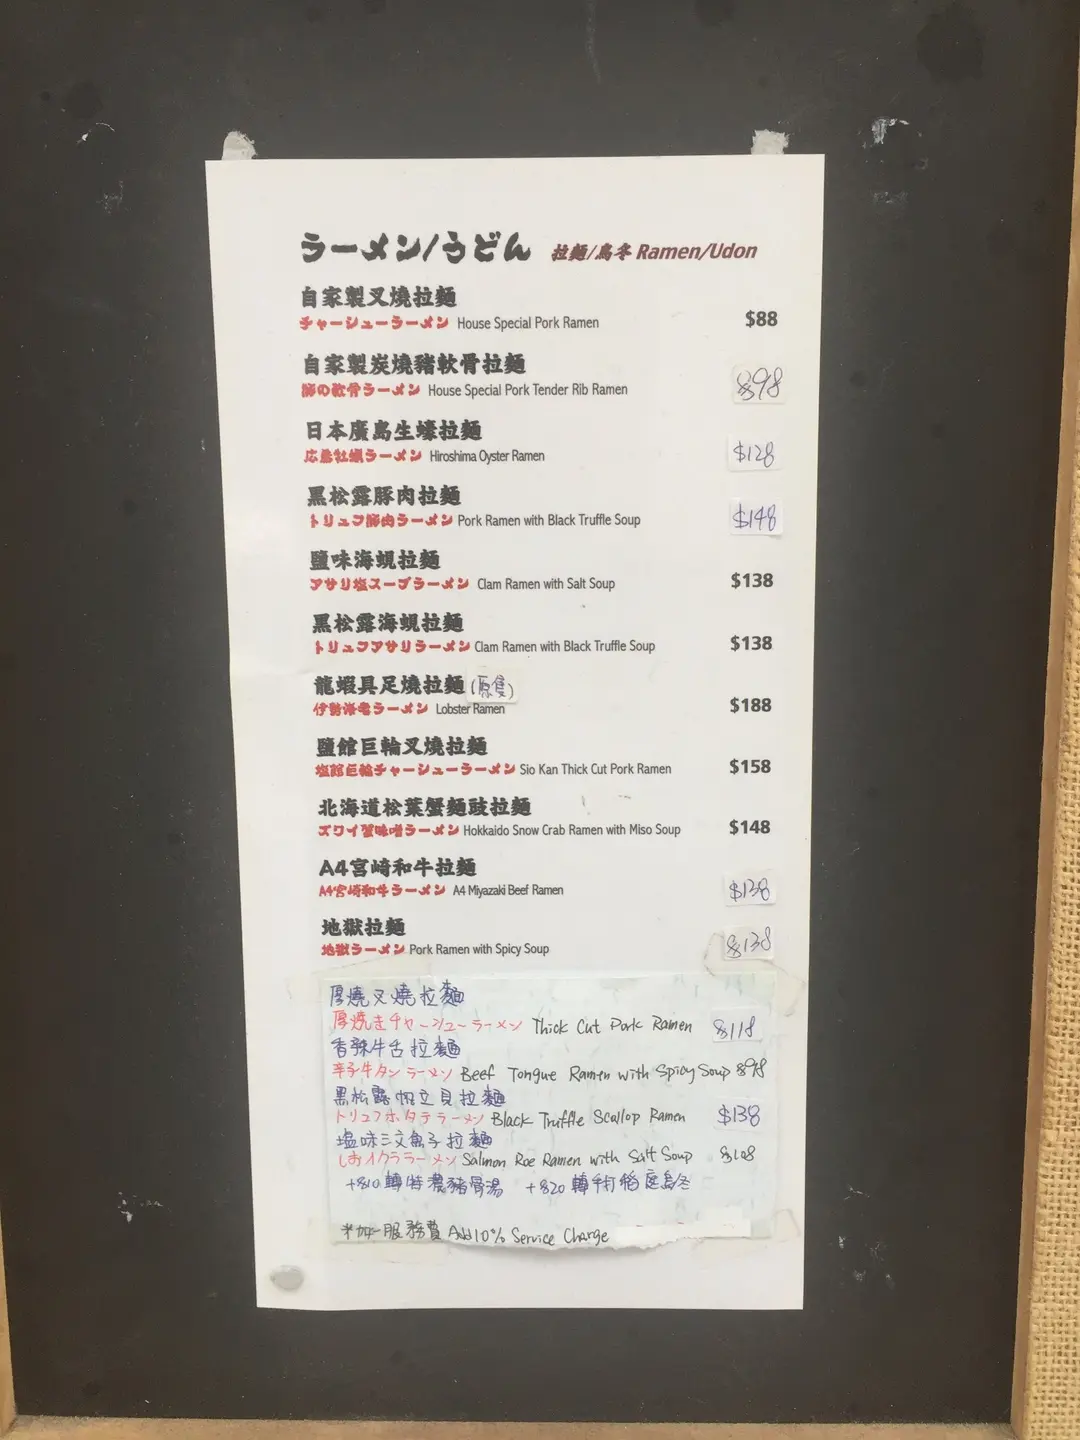 ラーメン/うどん 拉麵/烏冬 Ramen/Udon
自家製叉燒拉麵
チャーシューラーメン House Special Pork Ramen $88
自家製炭燒豬軟骨拉麵
豚の軟骨ラーメン House Special Pork Tender Rib Ramen $98
日本廣島生蠔拉麵
広島牡蠣ラーメン Hiroshima Oyster Ramen $128
黑松露豚肉拉麵
トリュフ豚肉ラーメン Pork Ramen with Black Truffle Soup $148
鹽味海蜆拉麵
アサリ塩スープラーメン Clam Ramen with Salt Soup $138
黑松露海蜆拉麵
トリュフアサリラーメン Clam Ramen with Black Truffle Soup $138
龍蝦具足燒拉麵 (原隻)
伊勢海老ラーメン Lobster Ramen $188
鹽館巨輪叉燒拉麵
塩館巨輪チャーシューラーメン Sio Kan Thick Cut Pork Ramen $158
北海道松葉蟹麵豉拉麵
ズワイ蟹味噌ラーメン Hokkaido Snow Crab Ramen with Miso Soup $148
A4宮崎和牛拉麵
A4宮崎和牛ラーメン A4 Miyazaki Beef Ramen $138
地獄拉麵
地獄ラーメン Pork Ramen with Spicy Soup $138
厚燒叉燒拉麵
厚焼きチャーシューラーメン Thick Cut Pork Ramen $118
香辣牛舌拉麵
辛子牛タンラーメン Beef Tongue Ramen with Spicy Soup $98
黑松露帆立貝拉麵
トリュフホタテラーメン Black Truffle Scallop Ramen $138
塩味三文魚子拉麵
しおイクララーメン Salmon Roe Ramen with Salt Soup $108
+$10 轉特濃豬骨湯 +$20 轉手打稻庭烏冬
*加一服務費 Add 10% Service Charge